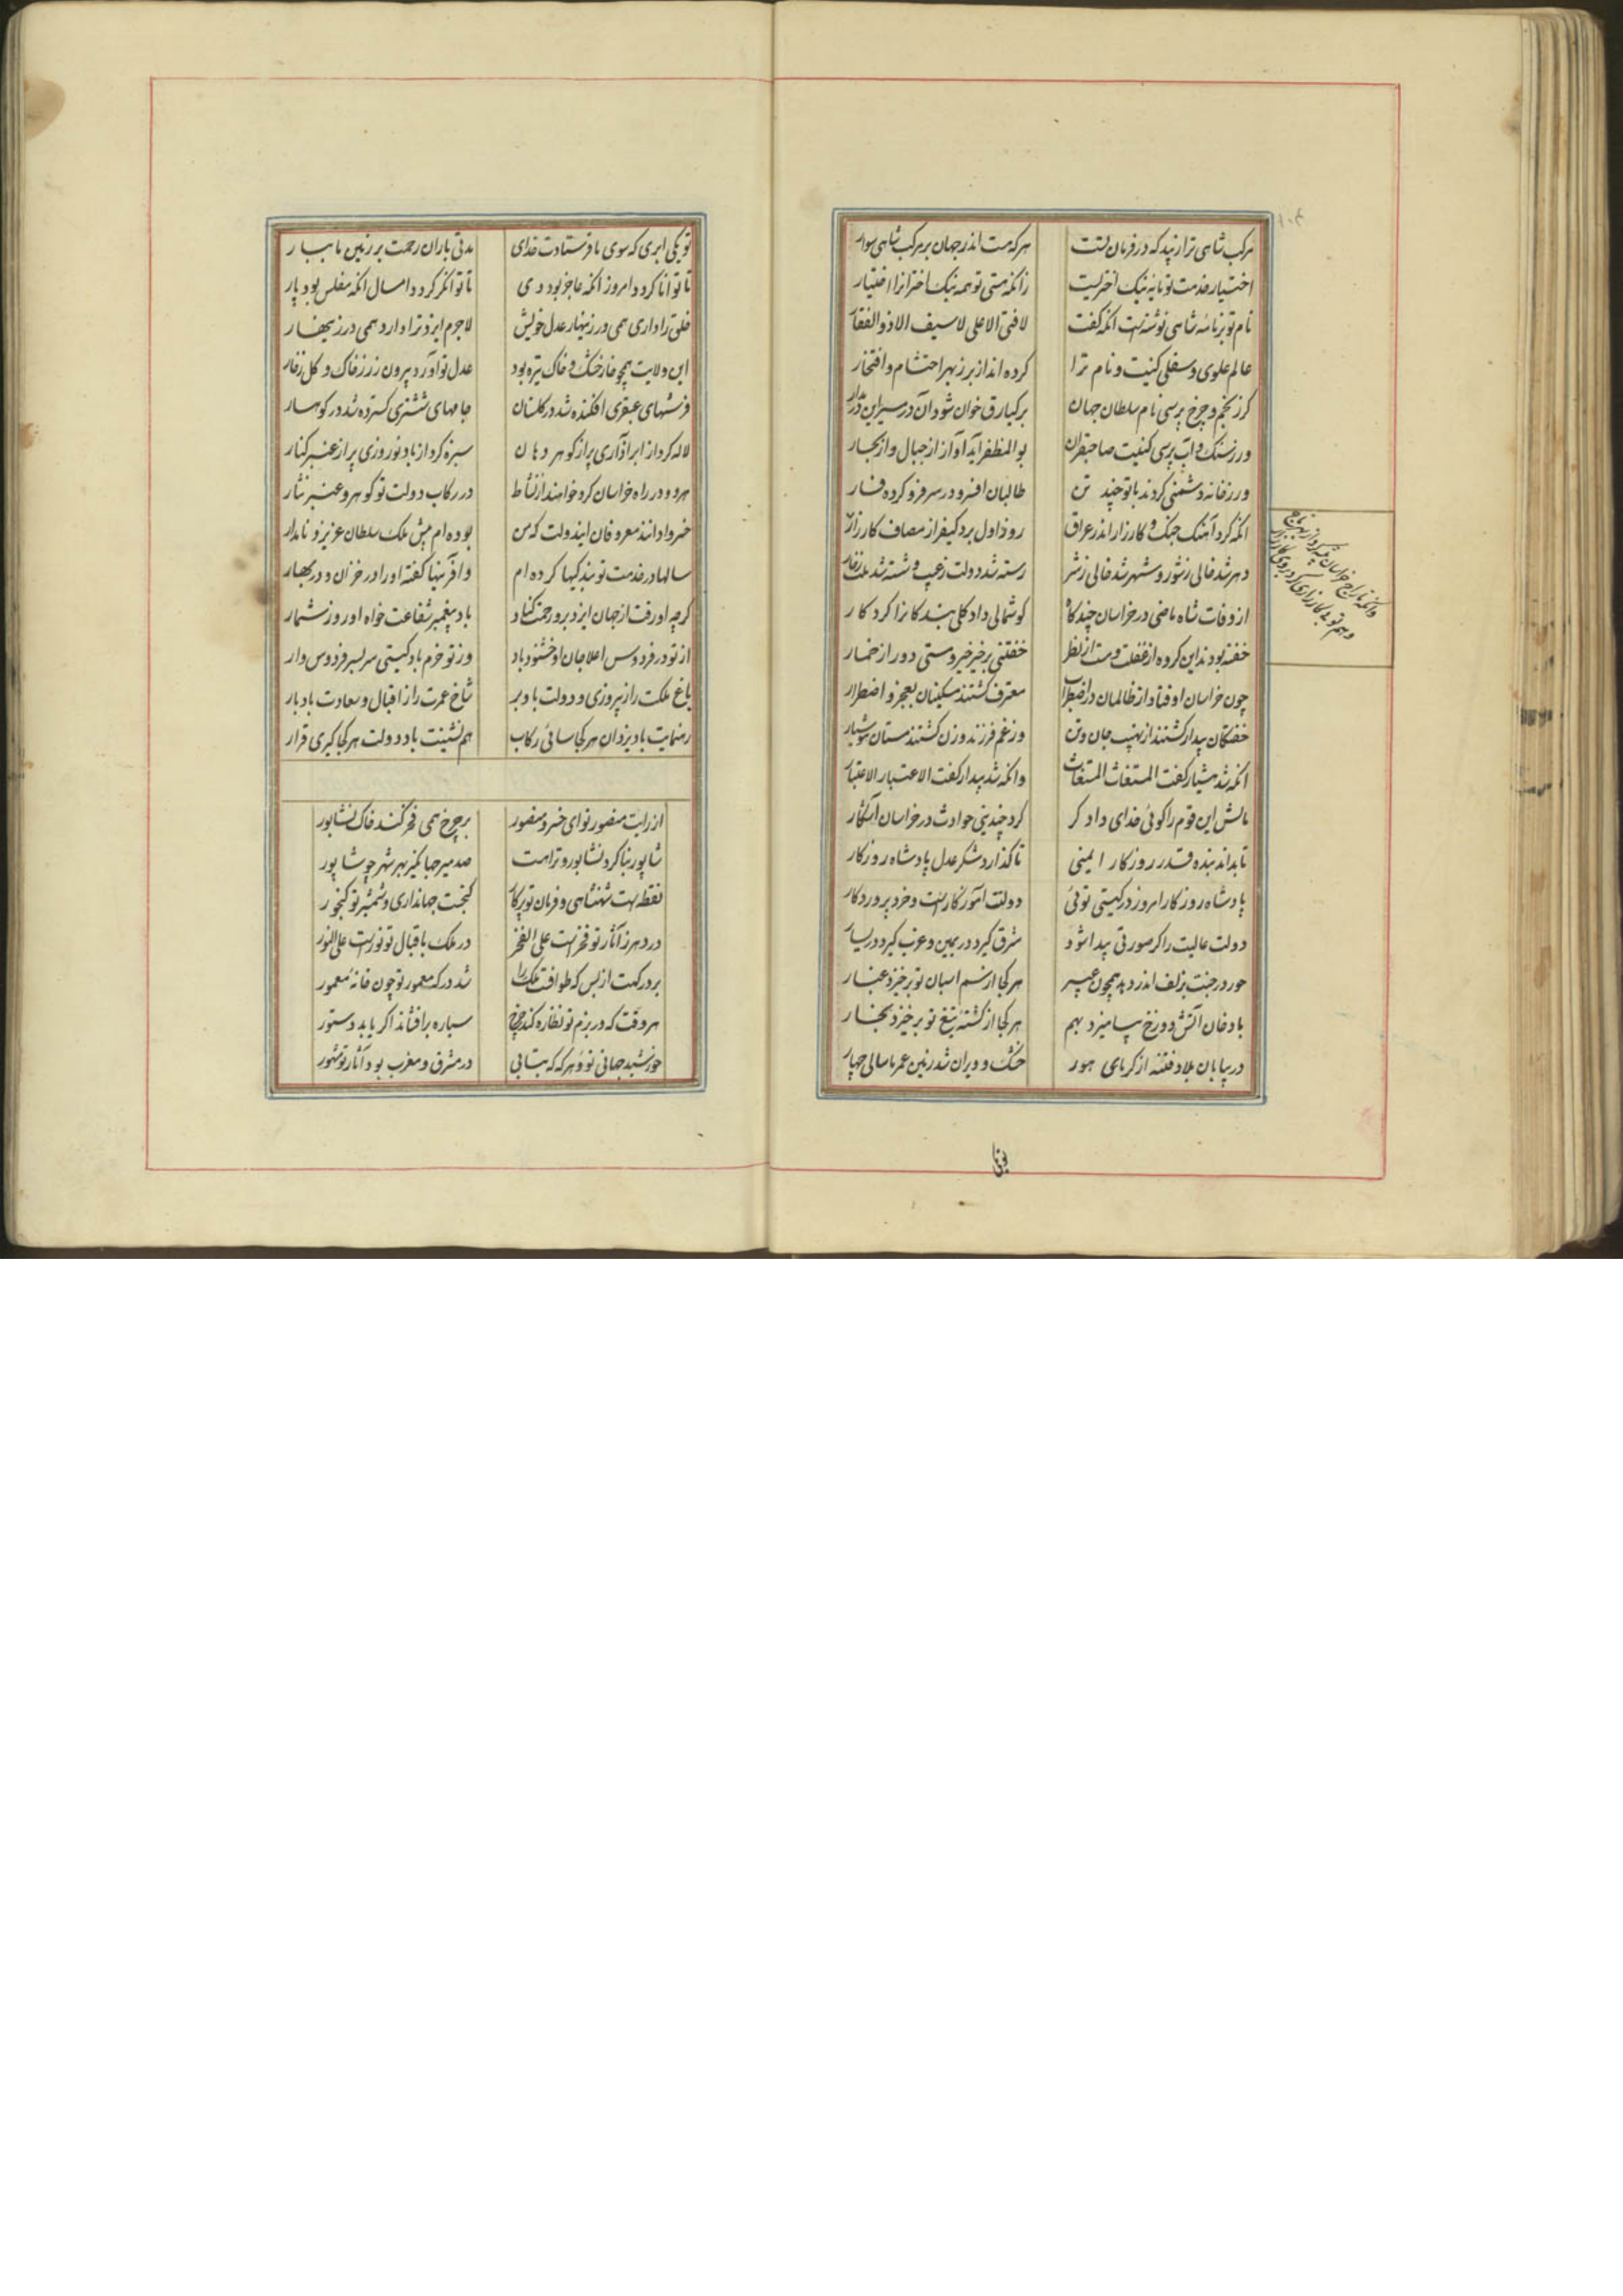 مرکب شاهی ترا زیبد که در فرمان تست هرکه هست اندر جهان بر مرکب شاهی سوار
اختیار خدمت تو مایه نیک اختریست زانکه هستی تو همه نیک اخترانرا اختیار
نام تو بر نامه شاهی نوشتست انکه گفت لافتی الا علی لاسیف الا ذوالفقار
عالم علوی و سفلی کنیت و نام ترا کرده اند از بر ز بهر احتشام و افتخار
کر ز نجم و چرخ پرسی نام سلطان جهان برکیارق خوان شود آن در مسیر این در مدار
ور ز سنک و آب پرسی کنیت صاحبقران بوالمظفر آید آواز از جبال و از بحار
ور ز خانه دشمنی کردند با تو چند تن طالبان افسر و در سر فزو کرده فسار
انکه کرد آهنک جنک و کارزار اندر عراق روز اول برد کیفر از مصاف کارزار
دهر شد خالی ز شور و شهر شد خالی ز شر رسته شد دولت ز عیب و شسته شد ملک
از وفات شاه ماضی در خراسان چندکاه کوشمالی داد کلی بندکانرا کردکار
خفته بودند این کروه از غفلت و مست از بطر خفتنی بر خیر خیر و مستی دور از خمار
چون خراسان اوفتاد از ظالمان در اضطراب معترف کشتند مسکینان بعجز و اضطرار
خفتکان بیدار کشتند از نهیب جان و تن وز غم فرزند و زن کشتند مستان هوشیار
انکه شد هشیار کفت المستغاث المستغاث وانکه شد بیدار کفت الاعتبار الاعتبار
مالش این قوم را کوئی خدای دادکر کرد چندینی حوادث در خراسان آشکار
تا بداند بنده قدر روزکار ایمنی تا کذارد شکر عدل پادشاه روزکار
پادشاه روزکار امروز در کیتی توئی دولتت آموزکار است و خرد پروردکار
دولت عالیت را کر صورتی پیدا شود شرق کیرد در یمین و غرب کیرد در یسار
حور در جنت بزلف اندر دهد همچون عبیر هر کجا از سم اسبان تو برخیزد غبار
با دخان آتش دوزخ بیامیزد بهم هر کجا از کشته تیغ تو برخیزد بخار
در بیابان بلا و فتنه از کرمای هور خشک و ویران شد زمین عمر ما سالی چهار
وانکه تاراج خراسان
توئی
تو یکی ابری که سوی ما فرستادت خدای مدتی باران رحمت بر زمین ما ببار
تا توانا کردد امروز انکه عاجز بود دی تا توانکر کردد امسال انکه مفلس بود پار
خلق را داری همی در زینهار عدل خویش لاجرم ایزد ترا دارد همی در زینهار
این ولایت همچو خار خشک و خاک تیره بود عدل تو آورد بیرون زر ز خاک و کل ز خار
فرشهای عبقری افکنده شد در کلستان جامهای ششتری کسترده شد در کوهسار
لاله کرد از ابر آذاری پر از کوهر دهان سبزه کرد از باد نوروزی پر از عنبر کنار
هردو در راه خراسان کرد خواهند از نشاط در رکاب دولت تو کوهر و عنبر نثار
خسروا دانند معروفان ایندولت که من بوده ام پیش ملک سلطان عزیز و نامدار
سالها در خدمت تو بندکیها کرده ام وافرینها کفته او را در خزان و در بهار
کرچه او رفت از جهان ایزد برو رحمت کناد باد پیغمبر شفاعت خواه او روز شمار
از تو در فردوس اعلا جان او خشنود باد وز تو خرم باد کیتی سر بسر فردوس وار
باغ ملکت را ز پیروزی و دولت باد بر شاخ عمرت را ز اقبال و سعادت باد بار
رهنمایت باد یزدان هر کجا سائی رکاب همنشینت باد دولت هر کجا کیری قرار
از رایت منصور تو ای خسرو منصور بر چرخ همی فخر کند خاک نشابور
شاپور بنا کرد نشابور و ترا هست صد میر جهانکیر بهر شهر چو شاپور
نقطه است شهنشاهی و فرمان تو پرکار کنجست جهانداری و شمشیر تو کنجور
در دهر ز آثار تو فخر است علی الفخر در ملک باقبال تو نور است علی النور
بر درکهت از بس که طوافست ملک را شد درکه معمور تو چون خانه معمور
هر وقت که در بزم تو نظاره کند چرخ سیاره برافشاند اکر یابد دستور
خورشید جهانی تو و هرکه که بتابی در مشرق و مغرب بود آثار تو مشهور